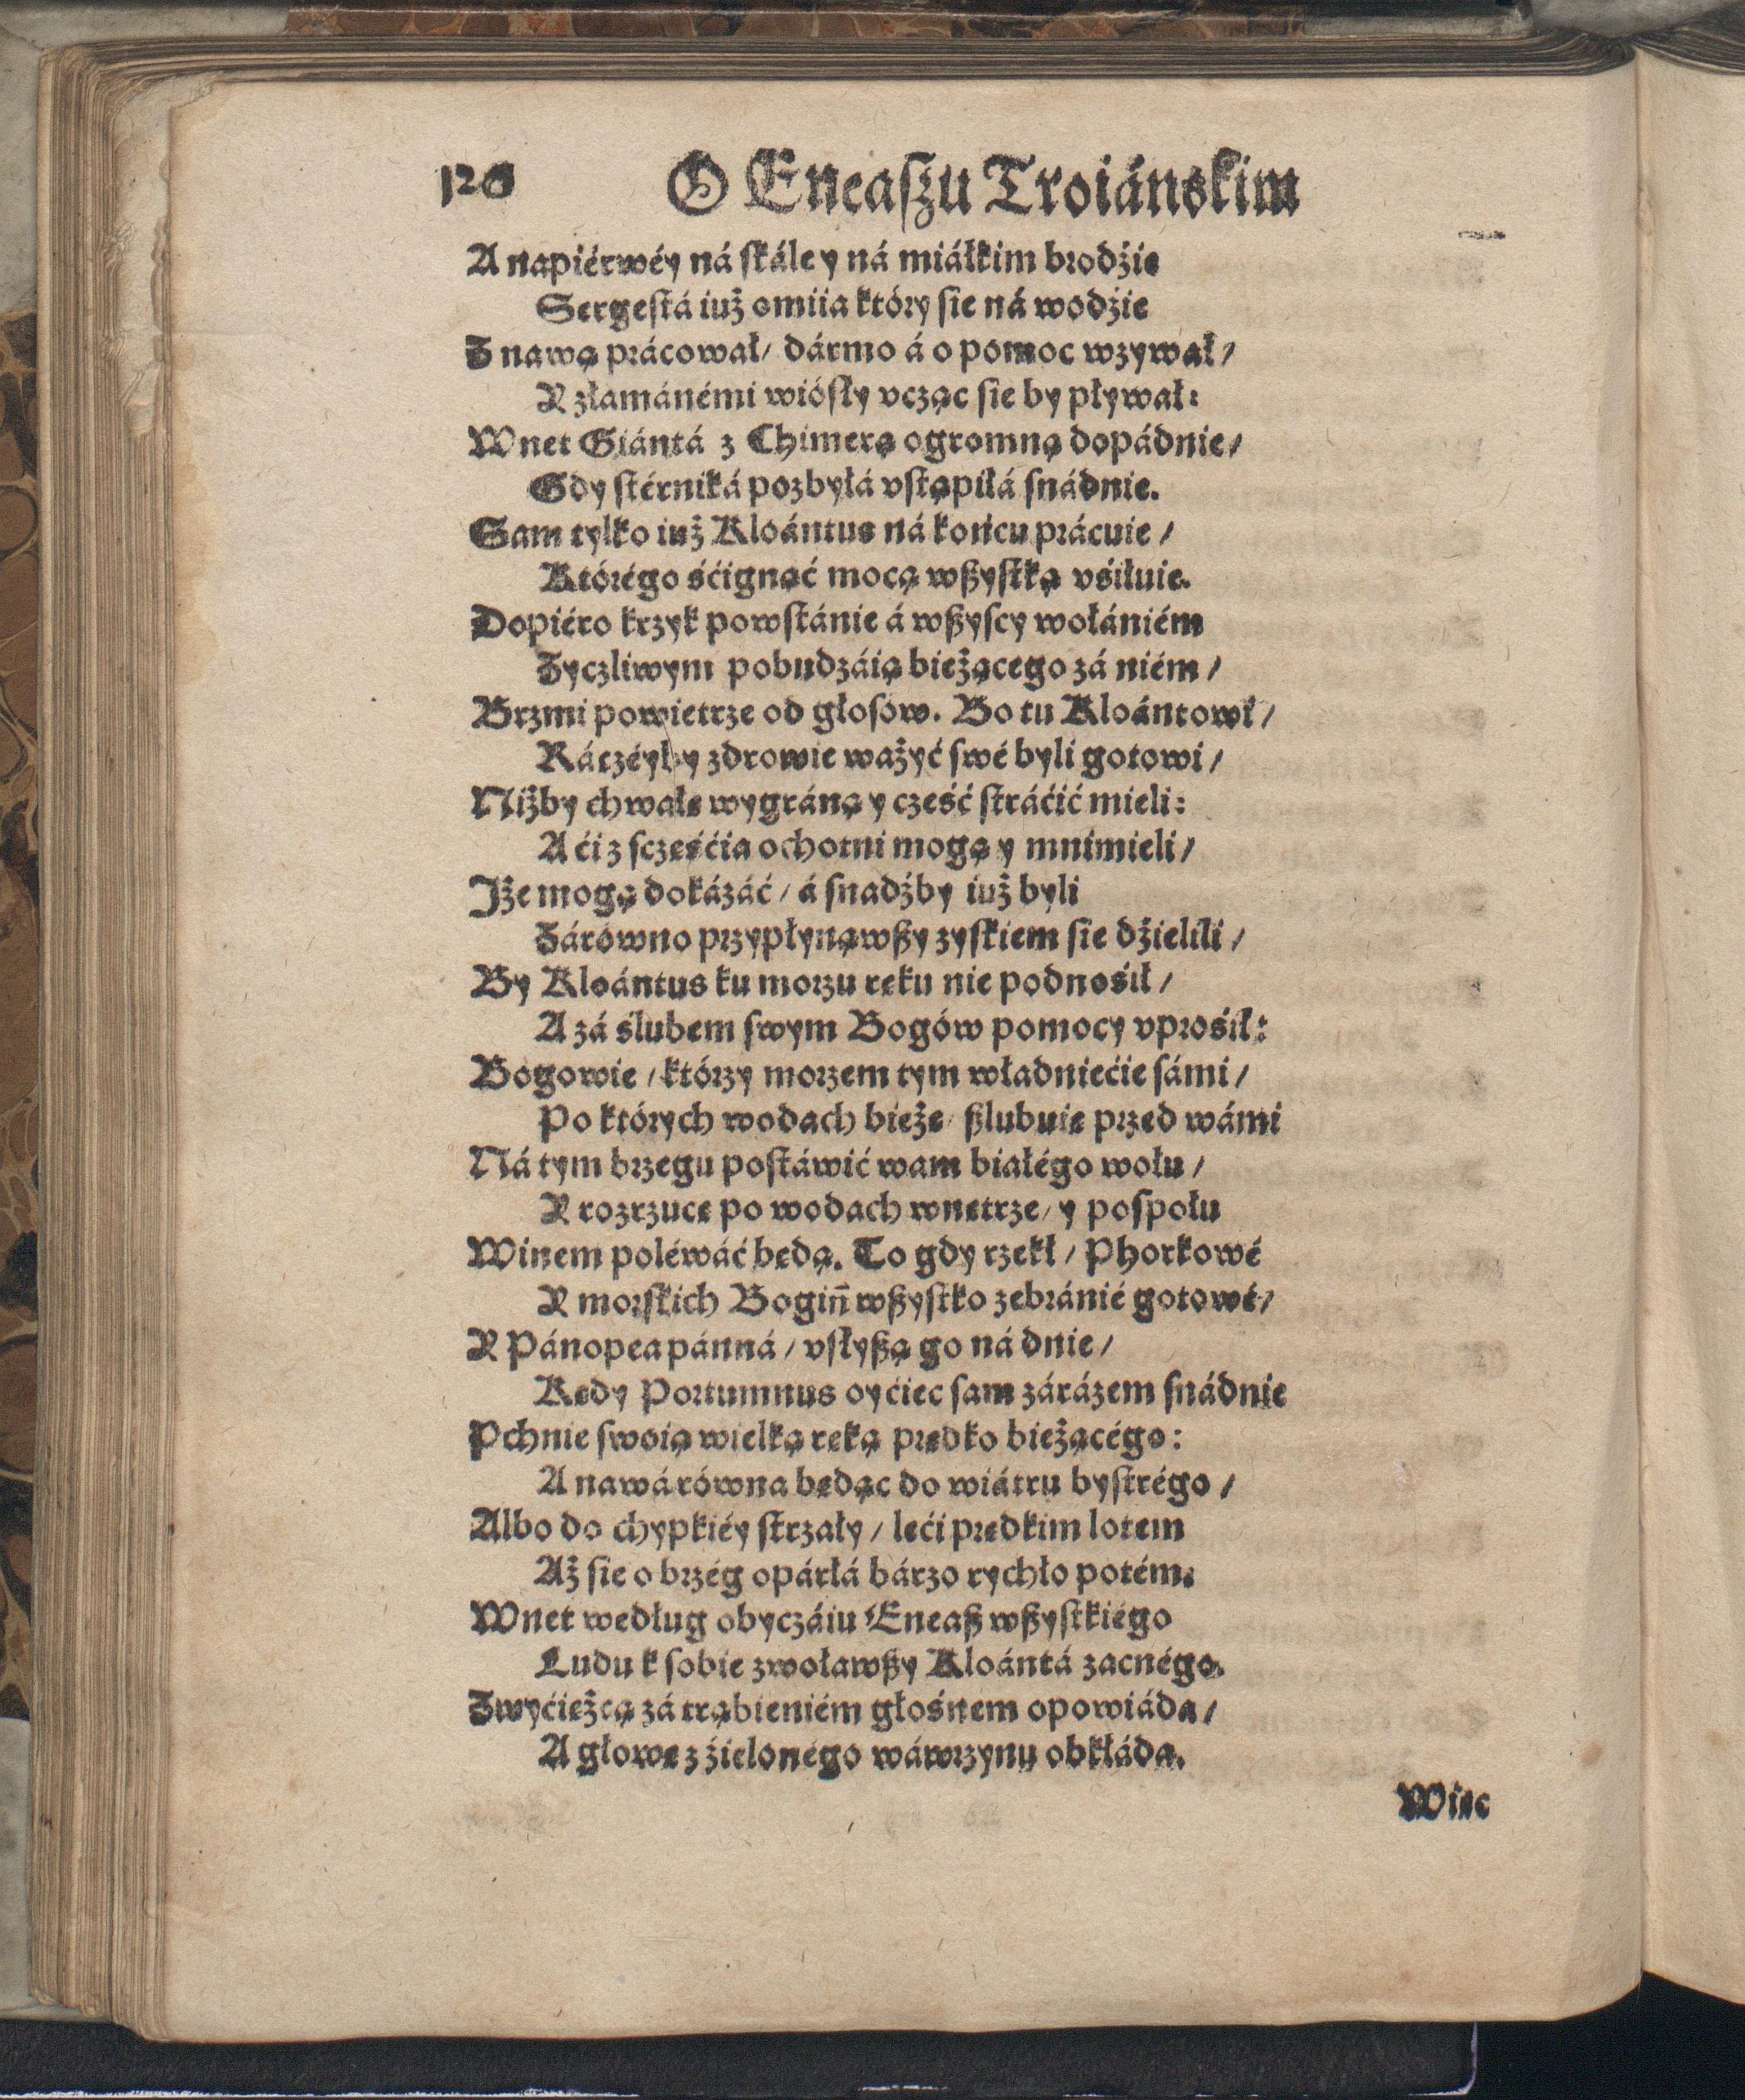 120 O Eneaſzu Troiánskim
A napiérwéy ná ſkále y ná miáłkim brodźie
Sergeſtá iuż omiia który ſie ná wodźie
Z nawą prácował/ dármo á o pomoc wzywał/
Y złamánémi wióſły vcząc ſie by pływał:
Wnet Giántá z Chimerą ogromną dopádnie/
Gdy ſtérniká pozbyłá vſtąpiłá ſnádnie.
Sam tylko iuż Kloántus ná końcu prácuie/
Którégo śćignąć mocą wßyſtką vśiłuie.
Dopiéro krzyk powſtánie á wßyſcy wołániém
Zyczliwym pobudzáią bieżącego zá niém/
Brzmi powietrze od głoſów. Bo tu Kloántowi/
Ráczéyby zdrowie ważyć ſwé byli gotowi/
Niżby chwałę wygráną y cześć ſtráćić mieli:
A ći z ſczęśćia ochotni mogą y mnimieli/
Jże mogą dokázáć/ á ſnadźby iuż byli
Zárówno przypłynąwßy zyſkiem ſie dźielili/
By Kloántus ku morzu ręku nie podnośił/
A zá ślubem ſwym Bogów pomocy vprośił:
Bogowie/ którzy morzem tym władniećie ſámi/
Po których wodach bieżę/ ßlubuię przed wámi
Ná tym brzegu poſtáwić wam białégo wołu/
Y rozrzucę po wodach wnętrze/ y poſpołu
Winem poléwáć będą. To gdy rzekł/ Phorkowé
Y morſkich Bogiń wßyſtko zebránié gotowé/
Y Pánopea pánná/ vſłyßą go ná dnie/
Kędy Portumnus oyćiec ſam zárázem ſnádnie
Pchnie ſwoią wielką ręką prędko bieżącégo:
A nawá równa będąc do wiátru byſtrégo/
Albo do chypkiéy ſtrzały/ leći prędkim lotem
Aż ſie o brzég opárłá bárzo rychło potém.
Wnet według obyczáiu Eneaß wßyſtkiégo
Ludu k ſobie zwoławßy Kloántá zacnégo.
Zwyćiężcą zá trąbieniém głośnem opowiáda/
A głowę z źielonégo wáwrzynu obkłáda.
Więc